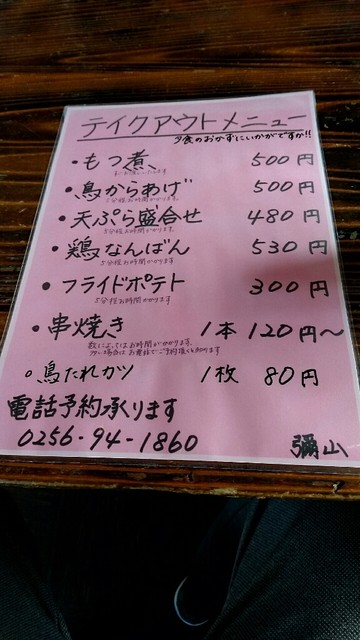 テイクアウトメニュー
夕食のおかずにいかがですか!!
・もつ煮 500円
・鳥からあげ 500円
5分程お時間かかります。
・天ぷら盛合せ 480円
5分程お時間かかります。
・鶏なんばん 530円
5分程お時間かかります
・フライドポテト 300円
5分程お時間かかります
・串焼き 1本 120円〜
数によってはお時間がかかります。
多い場合はお電話でご予約頂くと助かります
・鳥たれカツ 1枚 80円
電話予約承くります
0256-94-1860
彌山